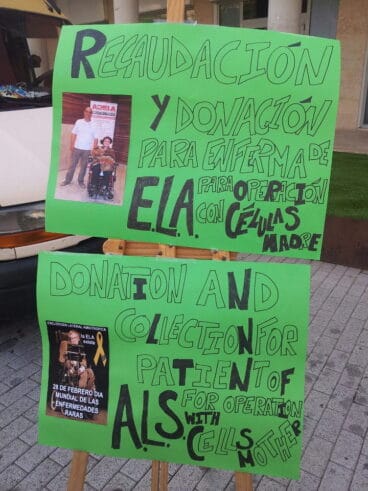 RECAUDACIÓN
Y DONACIÓN
PARA ENFERMA DE
E.L.A. PARA OPERACIÓN
CON CÉLULAS
MADRE
ADELA
DONATION AND
COLLECTION FOR
PATIENT OF
A.L.S. FOR OPERATION
WITH CELLS
MOTHER
la ELA
28 DE FEBRERO DIA
MUNDIAL DE LAS
ENFERMEDADES
RARAS